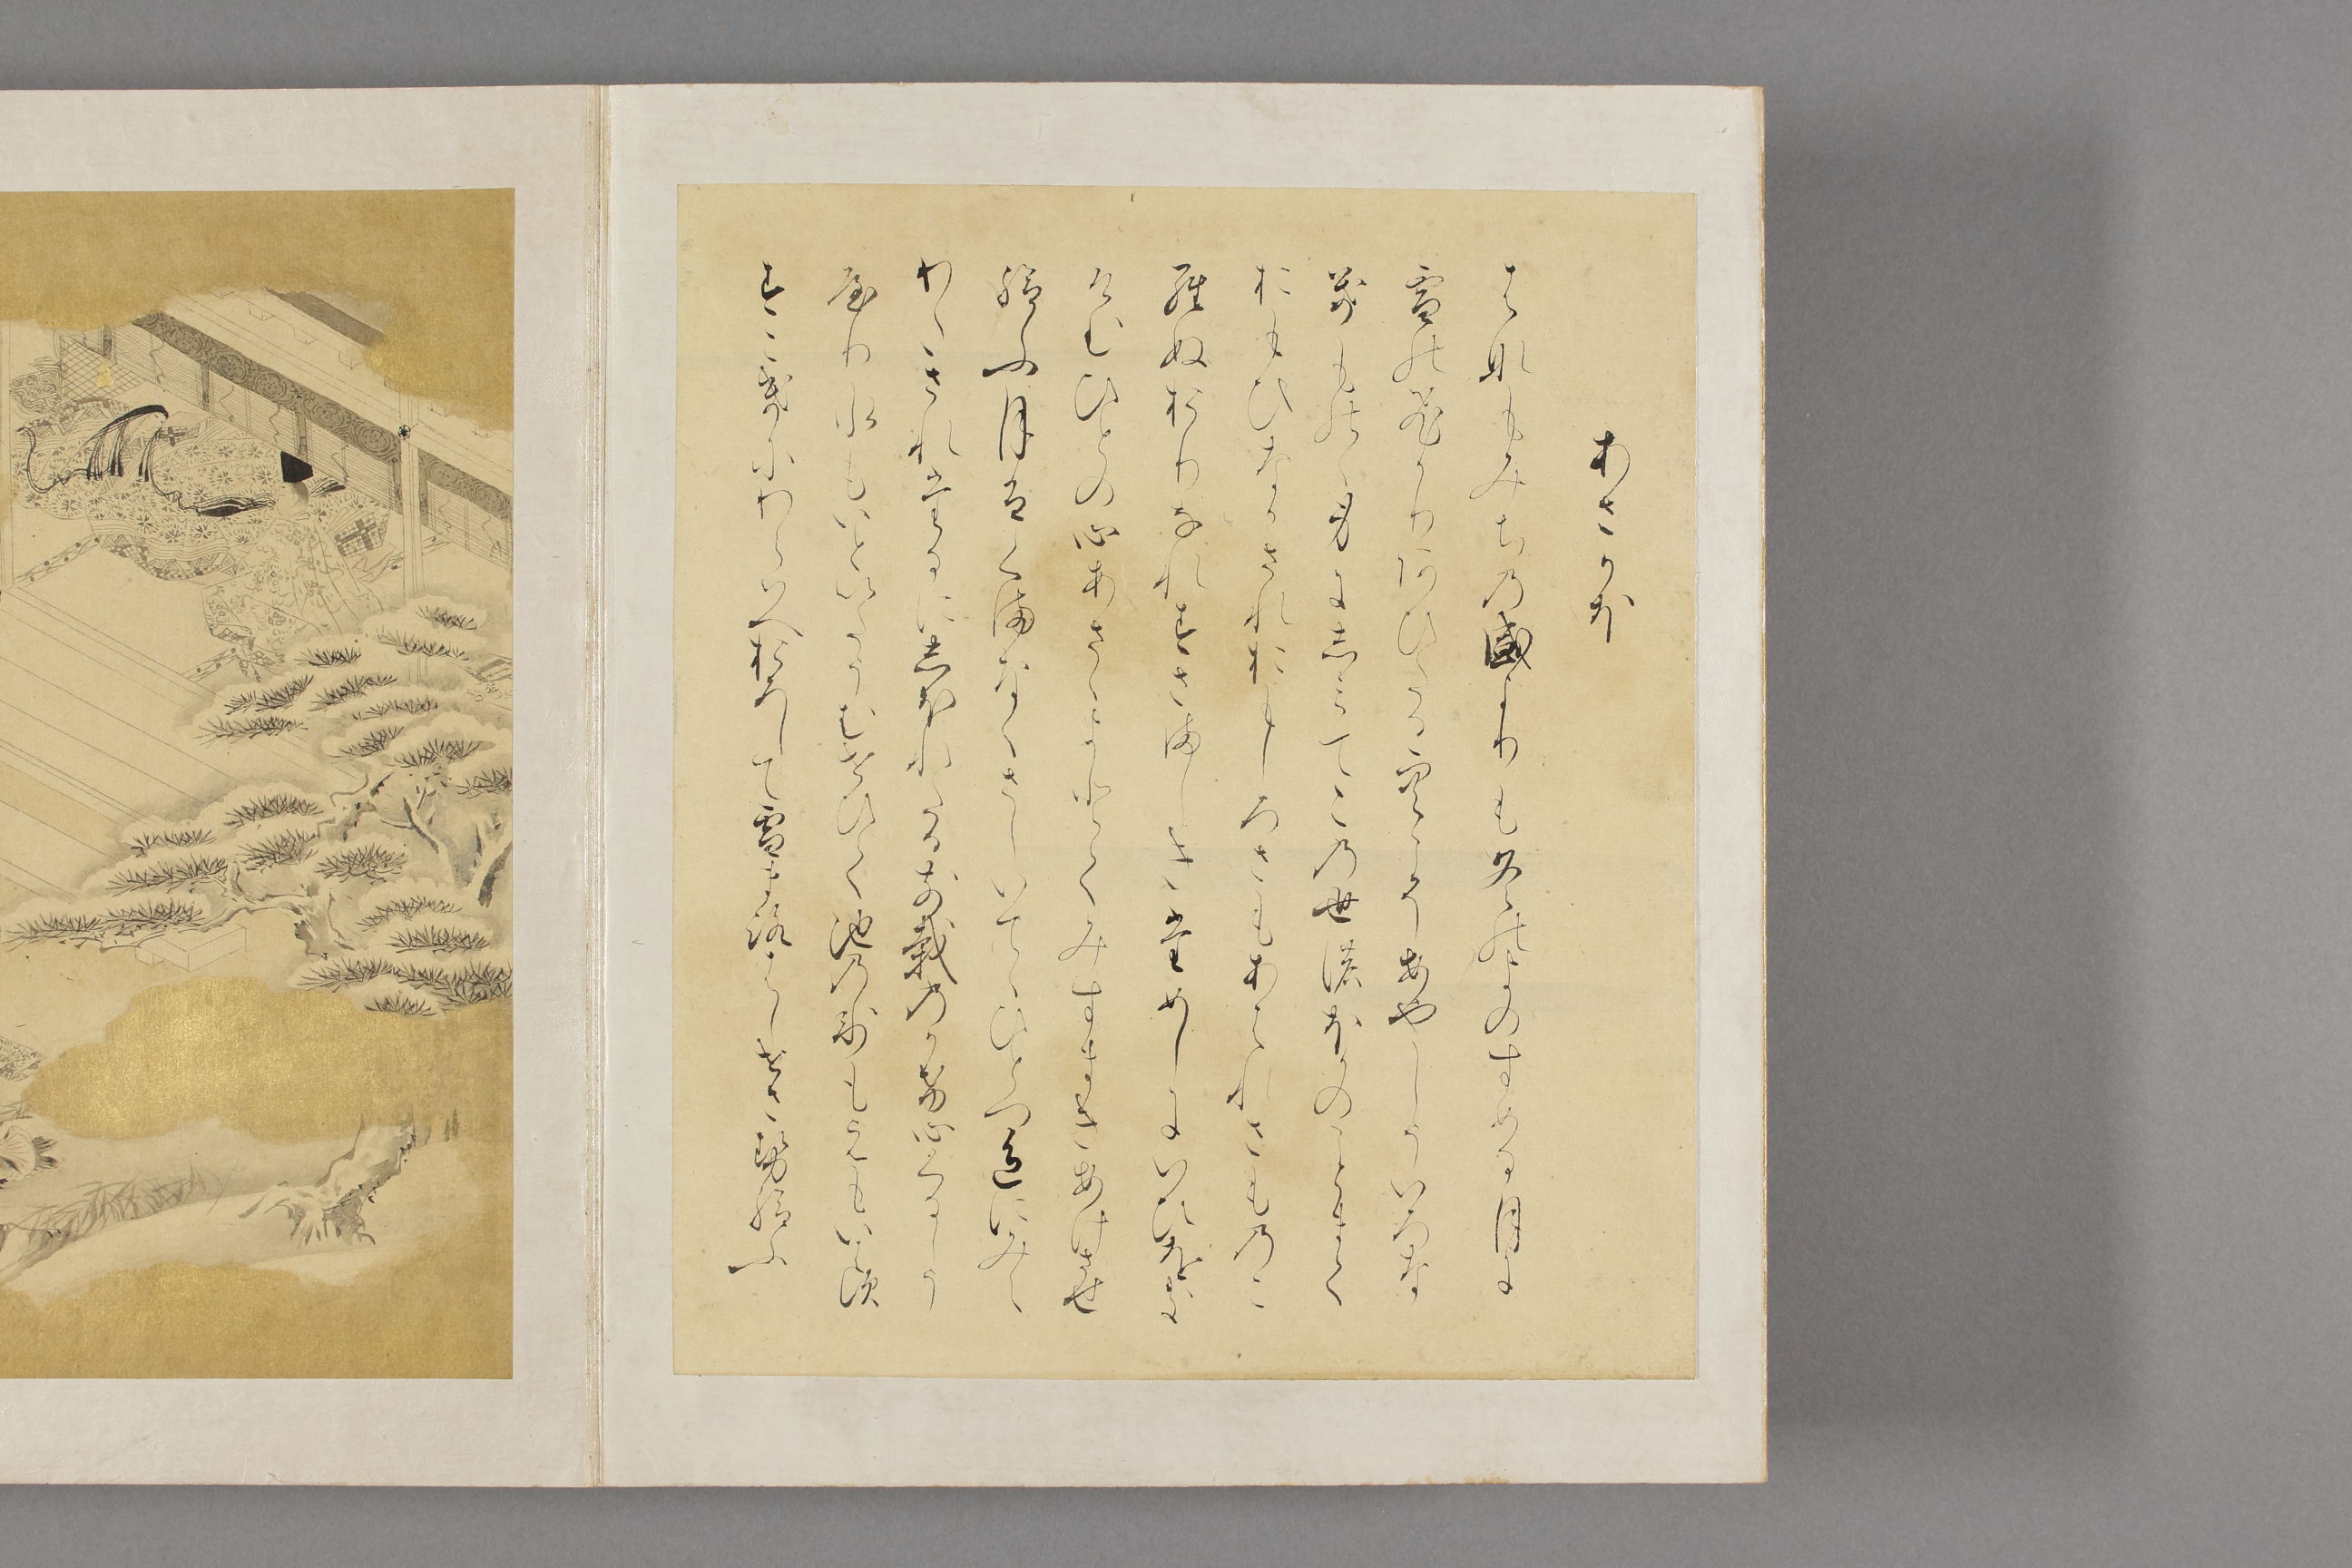 あさかほ
はなもみちの盛よりも冬のよのすめる月に
雪の光りあひたる空こそあやしういろな
きものゝ身にしみてこの世のほかのことまて
おもひなかされおもしろさもあはれさものこ
らぬおりなれすさましきためしにいひをき
けむひとの心あさゝよとてみすまきあけさせ
給ふ月はくまなくさしいてゝひとつ色にみえ
わたされたるにしほれたるせむ栽のかけ心くるしう
やり水もいといたうむせひて池の氷もえもいはす
すこきにわらはへおろして雪まろはしせさせ給ふ